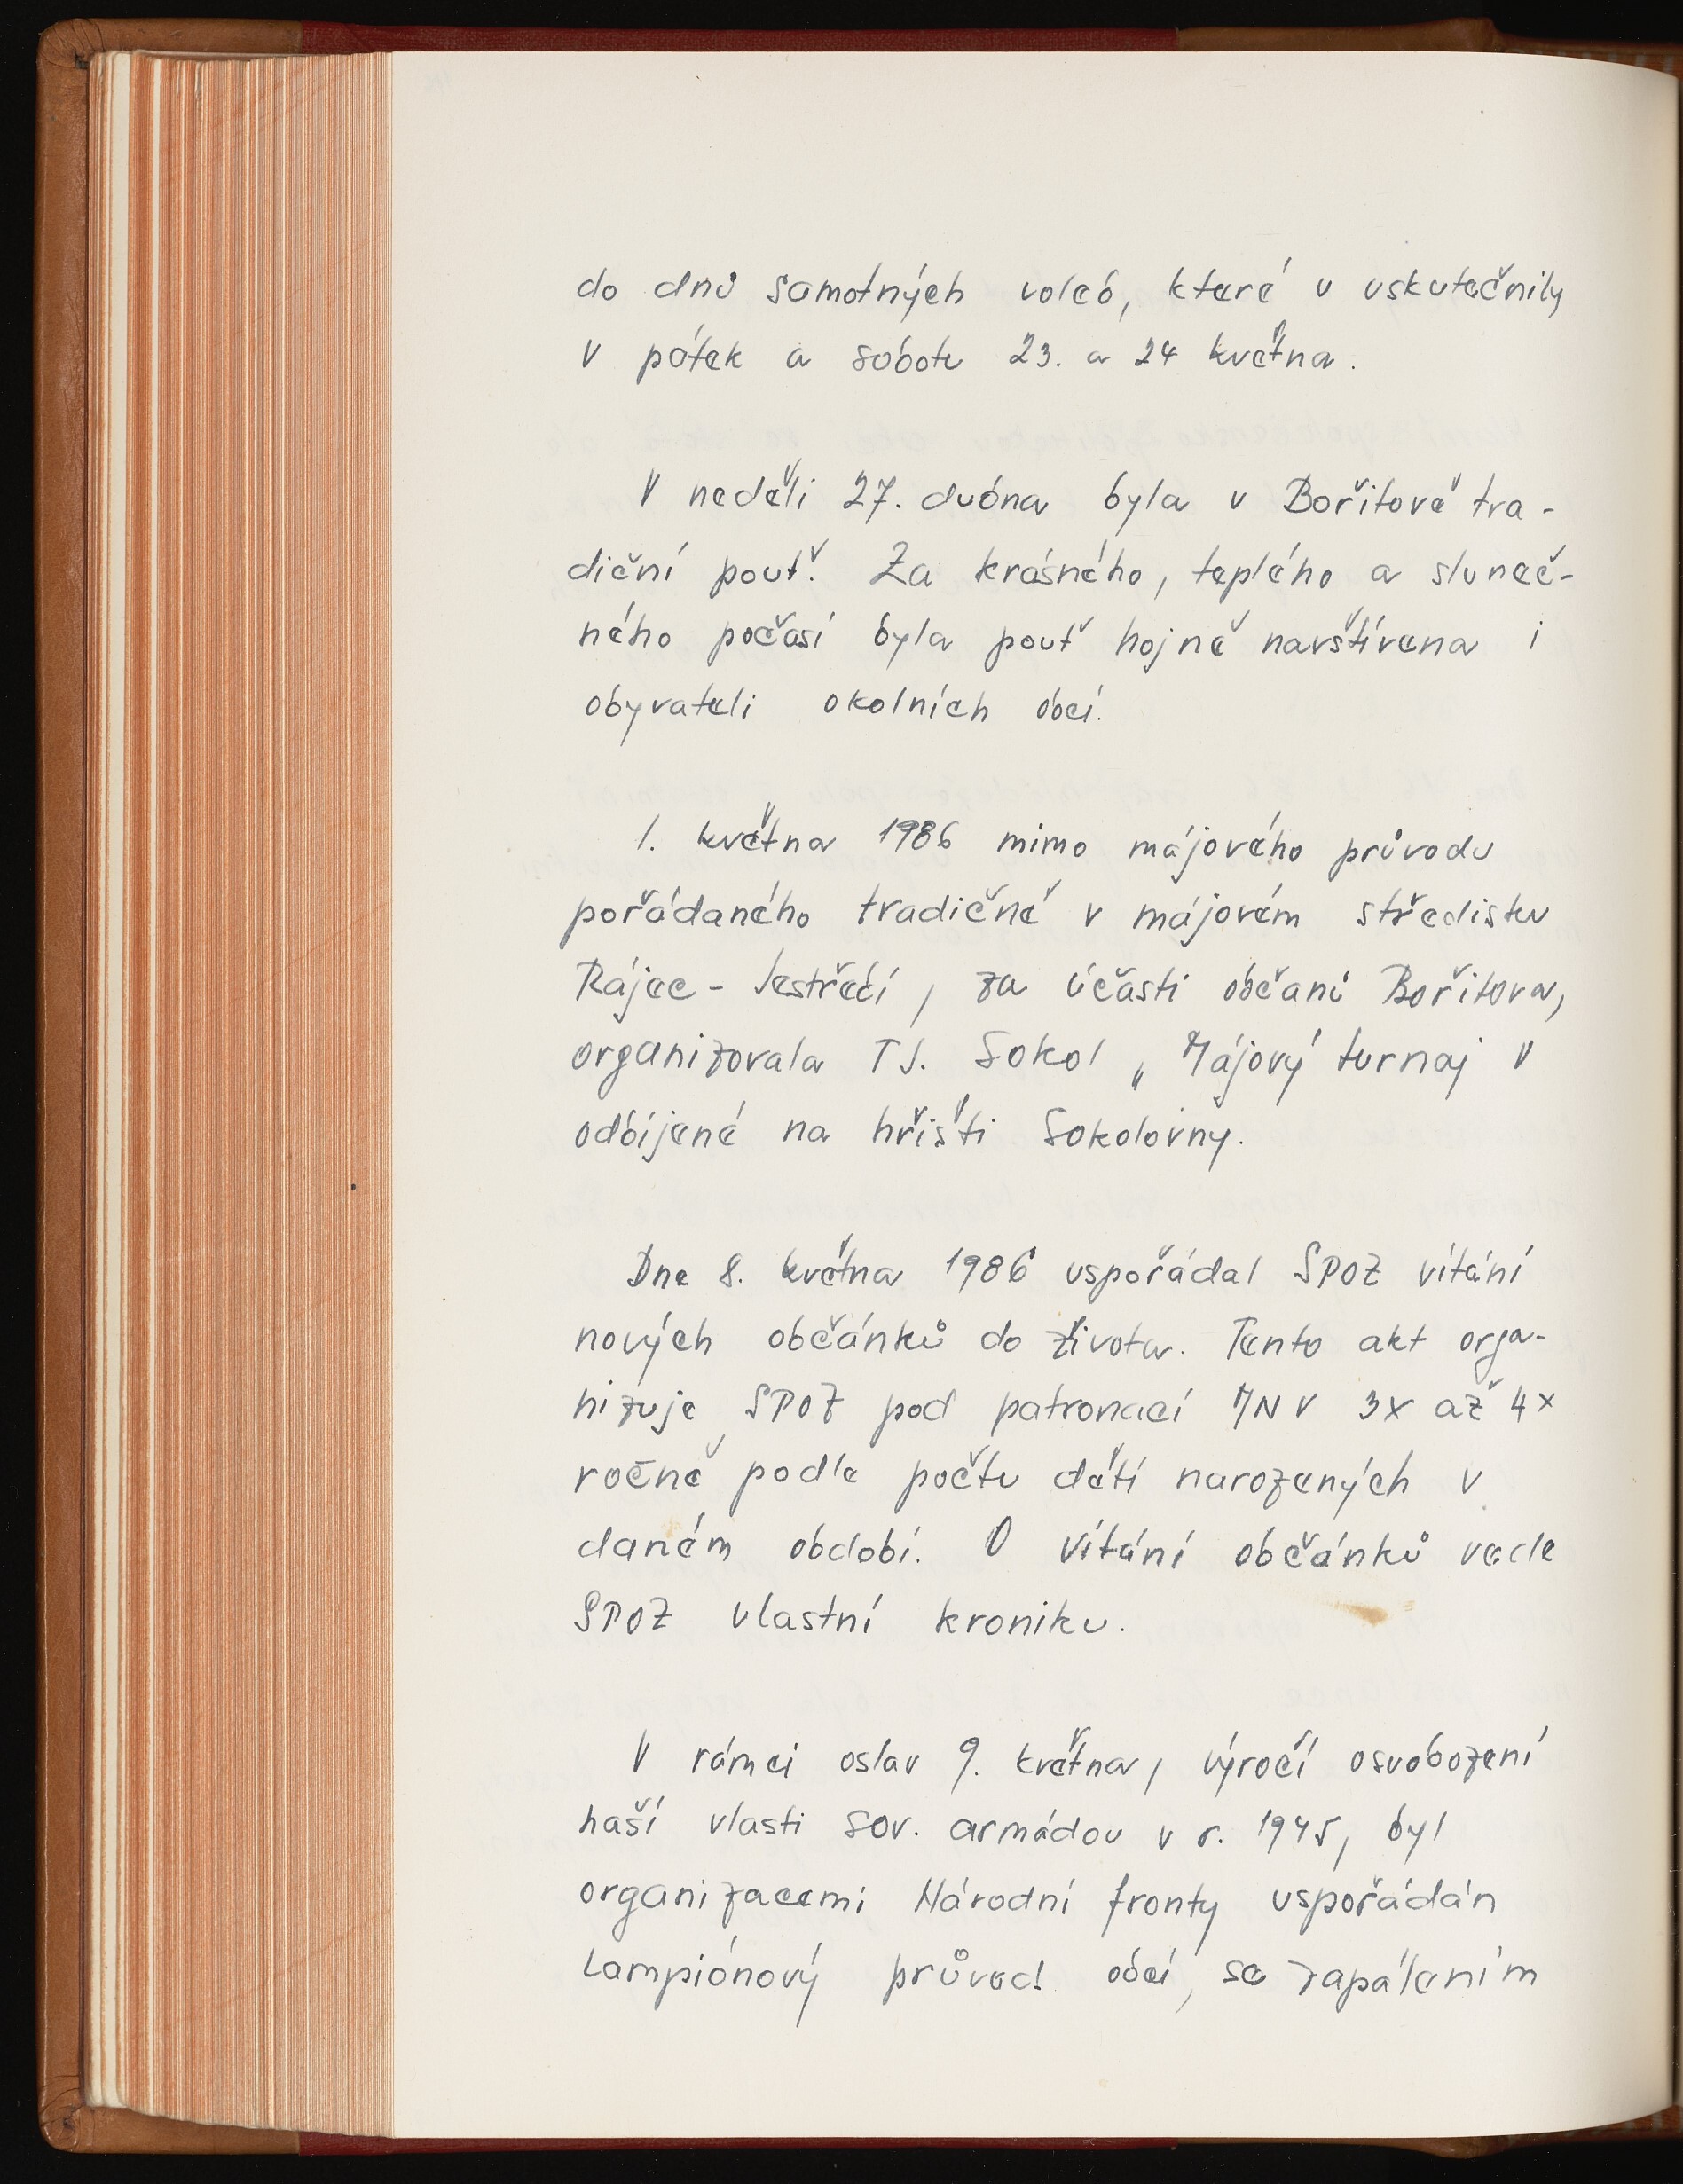 do dnů samotných voleb, které u uskutečnily
v pátek a sobotu 23. a 24 května.
V neděli 27. dubna byla v Bořitově tra-
diční pouť. Za krásného, teplého a sluneč-
ného počasí byla pouť hojně navštívena i
obyvateli okolních obcí.
1. května 1986 mimo májového průvodu
pořádaného tradičně v májovém středisku
Rájec - Jestřebí, za účasti občanů Bořitova,
organizovala TJ. Sokol „ Májový turnaj v
odbíjené na hřišti Sokolovny.
Dne 8. května 1986 uspořádal SPOZ vítání
nových občánků do života. Tento akt orga-
nizuje SPOZ pod patronací MNV 3x až 4x
ročně podle počtu dětí narozených v
daném období. O vítání občánků vede
SPOZ vlastní kroniku.
V rámci oslav 9. května, výročí osvobození
naší vlasti Sov. armádou v r. 1945, byl
organizacemi Národní fronty uspořádán
Lampiónový průvod obcí, se zapálením